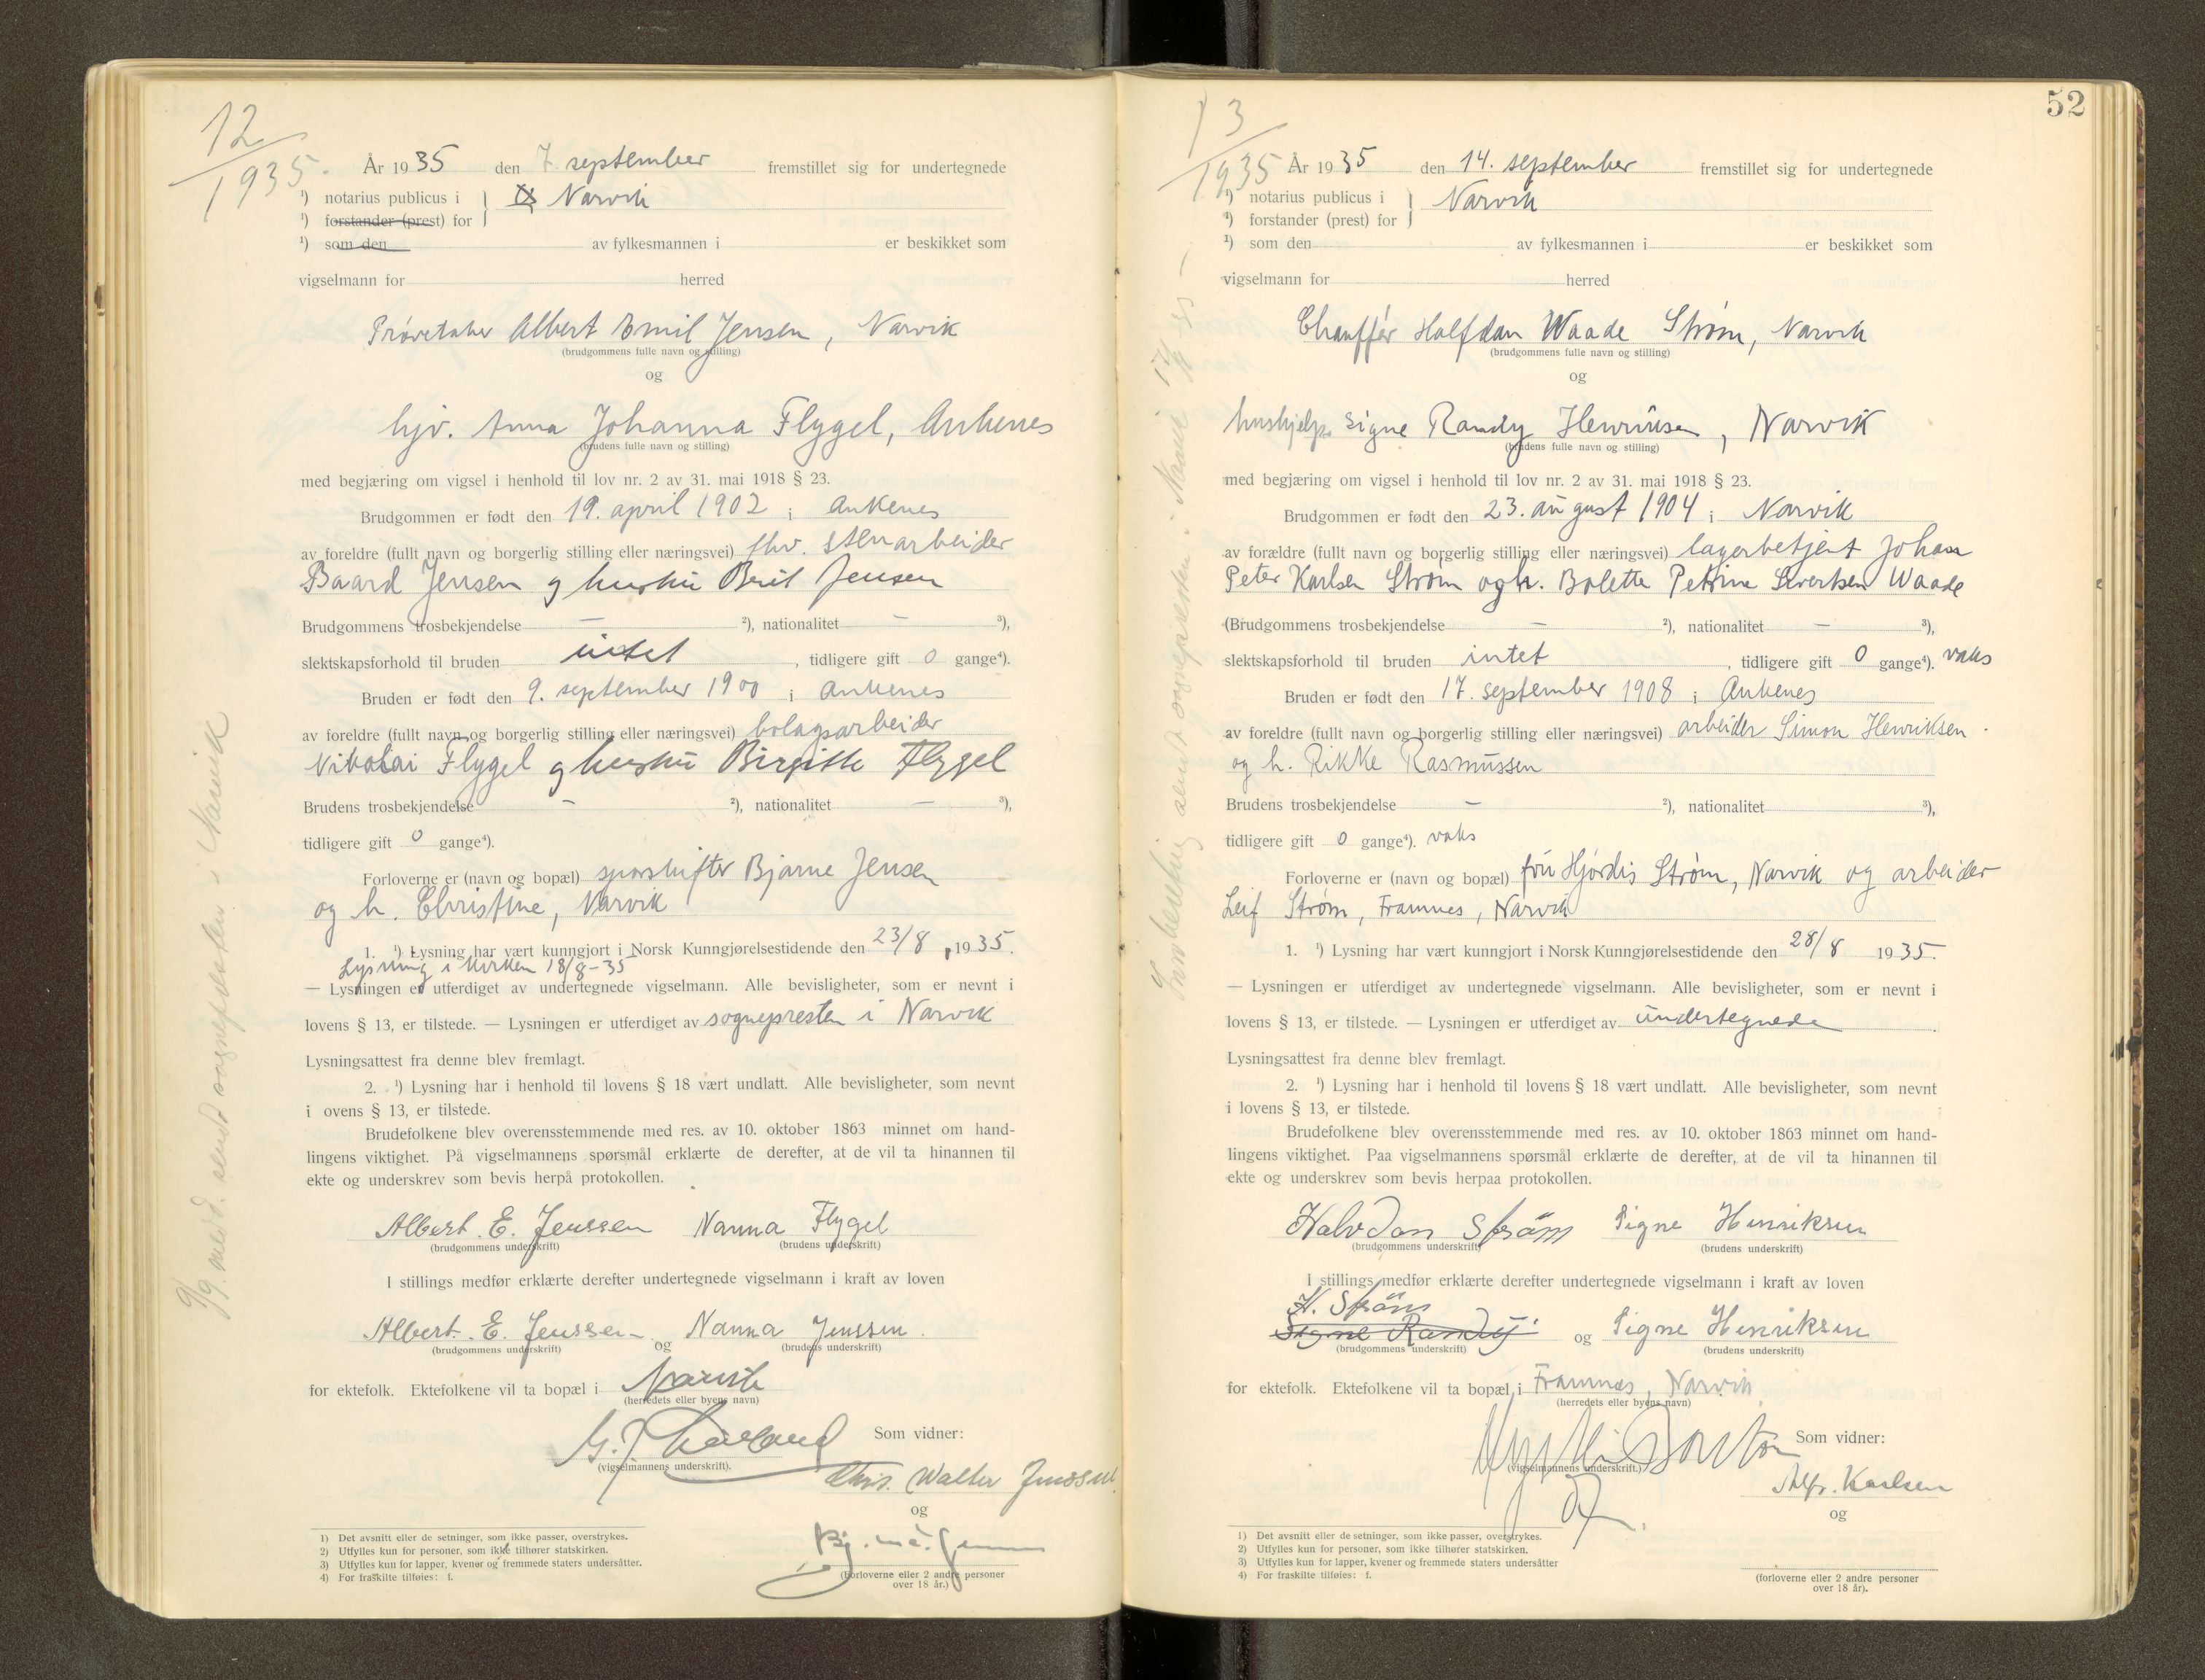 12
1935.
År 1935 den 7. september fremstillet sig for undertegnede
¹) notarius publicus i Narvik
¹) forstander (prest) for
¹) som den av fylkesmannen i er beskikket som
vigselmann for herred
Prøvetaker Albert Emil Jensen, Narvik
(brudgommens fulle navn og stilling)
og
hjv. Anna Johanna Flygel, Ankenes
(brudens fulle navn og stilling)
med begjæring om vigsel i henhold til lov nr. 2 av 31. mai 1918 § 23.
Brudgommen er født den 19. april 1902 i Ankenes
av foreldre (fullt navn og borgerlig stilling eller næringsvei) fhv. stenarbeider
Baard Jensen og hustru Berit Jensen
Brudgommens trosbekjendelse — ²), nationalitet — ³),
slektskapsforhold til bruden intet, tidligere gift 0 gange⁴).
Bruden er født den 9. september 1900 i Ankenes
av foreldre (fullt navn og borgerlig stilling eller næringsvei) bolagsarbeider
Nikolai Flygel og hustru Birgitte Flygel
Brudens trosbekjendelse — ²), nationalitet — ³),
tidligere gift 0 gange⁴).
Forloverne er (navn og bopæl) sporskifter Bjarne Jensen
og h. Christine, Narvik
1. ¹) Lysning har vært kunngjort i Norsk Kunngjørelsestidende den 23/8 1935.
Lysning i kirken 18/8-35
— Lysningen er utferdiget av undertegnede vigselmann. Alle bevisligheter, som er nevnt i
lovens § 13, er tilstede. — Lysningen er utferdiget av sognepresten i Narvik
Lysningsattest fra denne blev fremlagt.
2. ¹) Lysning har i henhold til lovens § 18 vært undlatt. Alle bevisligheter, som nevnt
i ovens § 13, er tilstede.
Brudefolkene blev overensstemmende med res. av 10. oktober 1863 minnet om hand-
lingens viktighet. På vigselmannens spørsmål erklærte de derefter, at de vil ta hinannen til
ekte og underskrev som bevis herpå protokollen.
Albert. E. Jenssen Nanna Flygel
(brudgommens underskrift) (brudens underskrift)
I stillings medfør erklærte derefter undertegnede vigselmann i kraft av loven
Albert. E. Jenssen og Nanna Jenssen.
(brudgommens underskrift) (brudens underskrift)
for ektefolk. Ektefolkene vil ta bopæl i Narvik
(herredets eller byens navn)
Som vidner:
(vigselmannens underskrift).
Chr. Walter Jenssen.
og
(Forloverne eller 2 andre personer
over 18 år.)
1) Det avsnitt eller de setninger, som ikke passer, overstrykes.
2) Utfylles kun for personer, som ikke tilhører statskirken.
3) Utfylles kun for lapper, kvener og fremmede staters undersåtter.
4) For fraskilte tilføies: f.
9/9. medd. sendt sognepresten i Narvik
52
13
1935
År 1935 den 14. september fremstillet sig for undertegnede
¹) notarius publicus i Narvik
¹) forstander (prest) for
¹) som den av fylkesmannen i er beskikket som
vigselmann for herred
Chauffør Halfdan Waade Strøm, Narvik
(brudgommens fulle navn og stilling)
og
hushjelp. Signe Randy Henriksen, Narvik
(brudens fulle navn og stilling)
med begjæring om vigsel i henhold til lov nr. 2 av 31. mai 1918 § 23.
Brudgommen er født den 23. august 1904 i Narvik
av forældre (fullt navn og borgerlig stilling eller næringsvei) lagerbetjent Johan
Peter Karlsen Strøm og h. Bolette Petrine Sivertsen Waade
(Brudgommens trosbekjendelse — ²), nationalitet — ³),
slektskapsforhold til bruden intet, tidligere gift 0 gange⁴). vaks
Bruden er født den 17. september 1908 i Ankenes
av foreldre (fullt navn og borgerlig stilling eller næringsvei) arbeider Simon Henriksen
og h. Rikke Rasmussen
Brudens trosbekjendelse — ²), nationalitet ³),
tidligere gift 0 gange⁴). vaks
Forloverne er (navn og bopæl) fru Hjørdis Strøm, Narvik og arbeider
Leif Strøm, Framnes, Narvik
1. ¹) Lysning har vært kunngjort i Norsk Kunngjørelsestidende den 28/8 1935.
— Lysningen er utferdiget av undertegnede vigselmann. Alle bevisligheter, som er nevnt i
lovens § 13, er tilstede. — Lysningen er utferdiget av undertegnede.
Lysningsattest fra denne blev fremlagt.
2. ¹) Lysning har i henhold til lovens § 18 vært undlatt. Alle bevisligheter, som nevnt
i lovens § 13, er tilstede.
Brudefolkene blev overensstemmende med res. av 10. oktober 1863 minnet om hand-
lingens viktighet. Paa vigselmannens spørsmål erklærte de derefter, at de vil ta hinannen til
ekte og underskrev som bevis herpaa protokollen.
Halvdan Strøm Signe Henriksen
(brudgommens underskrift) (brudens underskrift)
I stillings medfør erklærte derefter undertegnede vigselmann i kraft av loven
H. Strøm
Signe Randy og Signe Henriksen
(brudgommens underskrift) (brudens underskrift)
for ektefolk. Ektefolkene vil ta bopæl i Framnes, Narvik
(herredets eller byens navn)
Som vidner:
(vigselmannens underskrift.)
Alfr. Karlsen
og
(forloverne eller 2 andre personer
over 18 år).
1) Det avsnitt eller de setninger, som ikke passer, overstrykes.
2) Utfylles kun for personer, som ikke tilhører statskirken.
3) Utfylles kun for lapper, kvener og fremmede staters undersåtter
4) For fraskilte tilføies: f.
Innberetning sendt sognepresten i Narvik 17/9-35 –